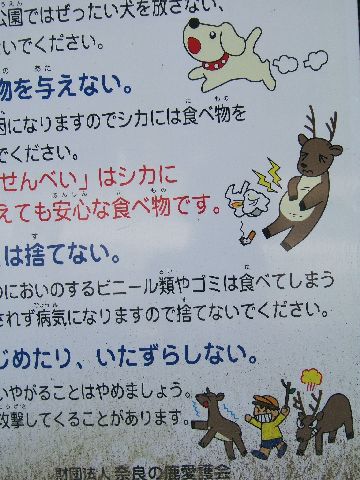 公園ではぜったい犬を放さない、
いでください。
物を与えない。
因になりますのでシカには食べ物を
でください。
せんべい」はシカに
えても安心な食べ物です。
は捨てない。
のにおいのするビニール類やゴミは食べてしまう
されず病気になりますので捨てないでください。
じめたり、いたずらしない。
いやがることはやめましょう。
攻撃してくることがあります。
財団法人 奈良の鹿愛護会